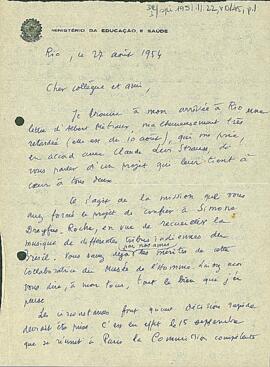 MINISTÉRIO DA EDUCAÇÃO E SAÚDE
Rio, le 27 août 1954
Cher collègue et ami,
Je trouve à mon arrivée à Rio une
lettre d'Albert Métraux, malheureusement très
retardée (elle est du 10 août), qui me prie,
en accord avec Claude Lévi Strauss, de
vous parler d'un projet qui leur tient à
cœur à tous deux.
Il s'agit de la mission que vous
avez formé le projet de confier à Simone
Dreyfus-Roche, en vue de recueillir la
musique de différentes tribus indiennes du
Brésil. Vous savez les mérites de cette
collaboratrice du Musée de l'Homme.
vous dire, à mon tour, tout le bien que j'en
pense.
Les circonstances font qu'une décision rapide
devrait être prise. C'est en effet le 15 septembre
que se réunit à Paris la Commission compétente